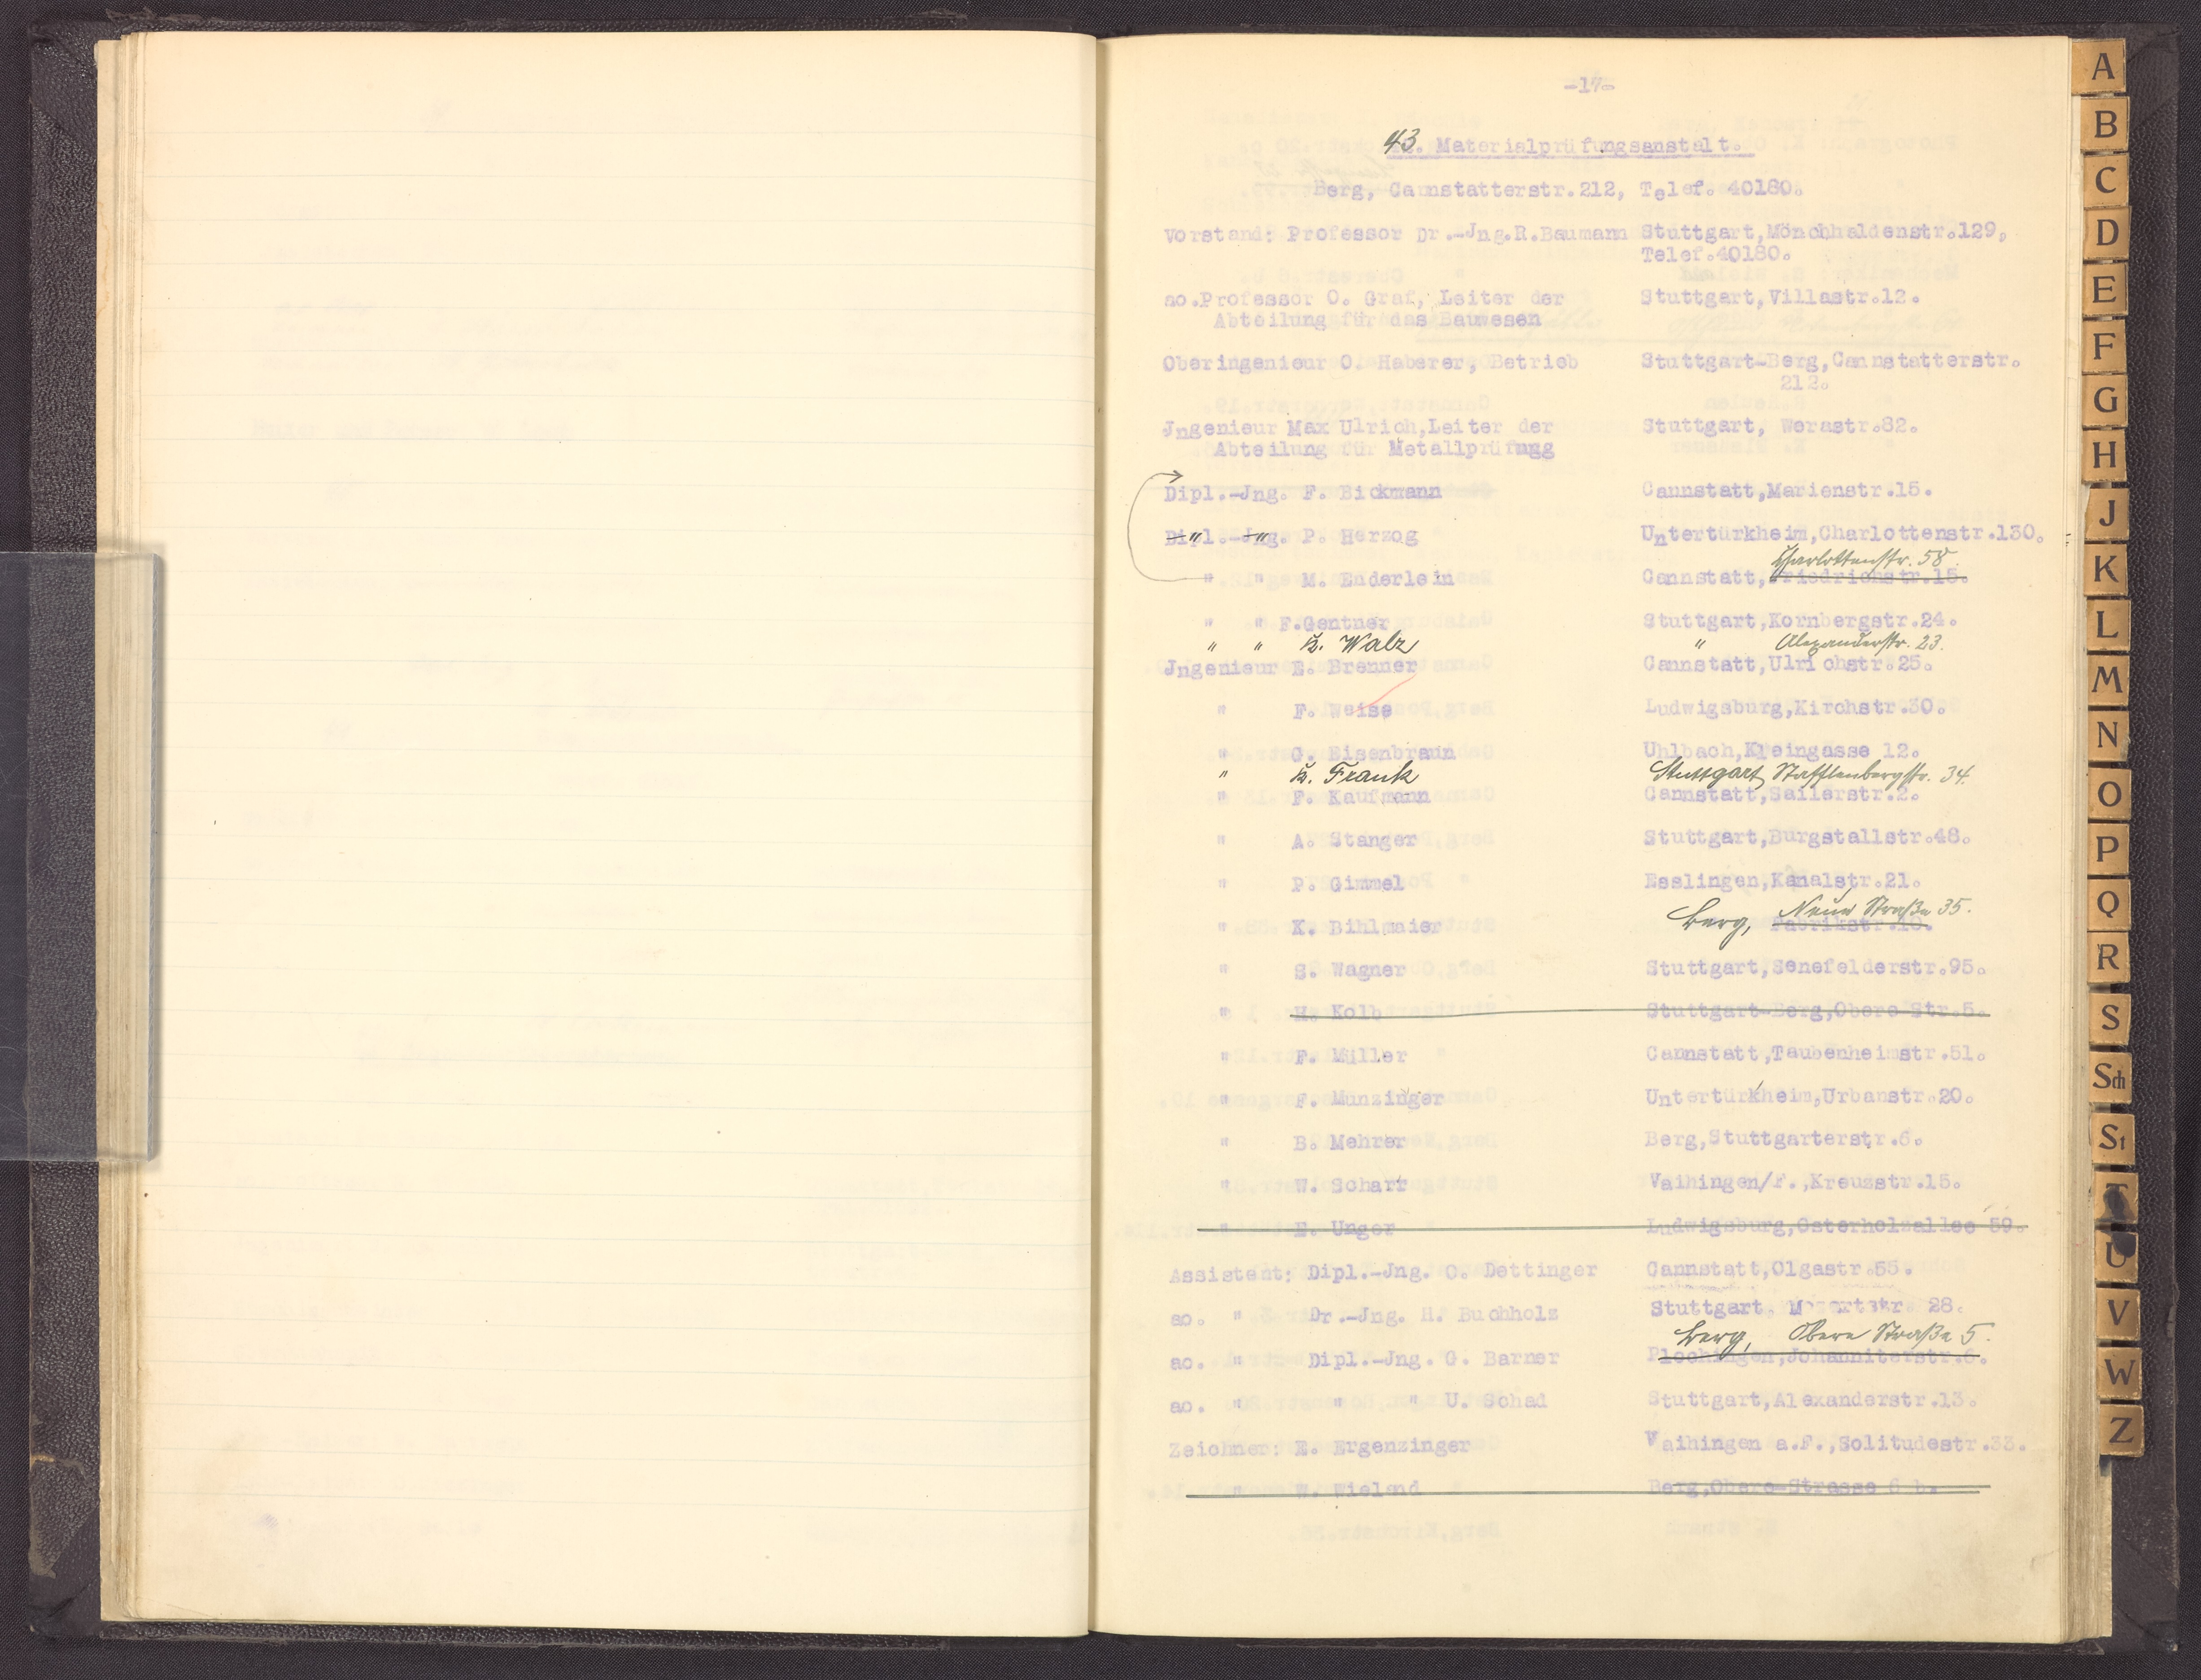 -17-
43. Materialprüfungsanstalt.
Berg, Cannstatterstr.212, Telef. 40180.
Vorstand: Professor Dr.-Jng.R.Baumann Stuttgart,Mönchhaldenstr.129,
Telef.40180.
ao.Professor O. Graf, Leiter der Stuttgart,Villastr.12.
Abteilung für das Bauwesen
Oberingenieur O. Haberer, Betrieb Stuttgart-Berg,Cannstatterstr.
212.
Jngenieur Max Ulrich,Leiter der Stuttgart, Werastr.82.
Abteilung für Metallprüfung
Dipl.-Jng. F. Bickmann Cannstatt,Marienstr.15.
Dipl.-Jng. P. Herzog Untertürkheim,Charlottenstr.130.
Charlottenstr. 58
" " M. Enderlein Cannstatt,Friedrichstr.15.
" " F.Gentner Stuttgart,Kornbergstr.24.
" " K. Walz " Alexanderstr. 23.
Jngenieur E. Brenner Cannstatt,Ulrichstr.25.
" F. Weise Ludwigsburg,Kirchstr.30.
" G. Eisenbraun Uhlbach,Kleingasse 12.
" K. Frank Stuttgart, Stafflenbergstr. 34.
" F. Kaufmann Cannstatt,Seilerstr.2.
" A. Stanger Stuttgart,Burgstallstr.48.
" P. Gimmel Esslingen,Kanalstr.21.
Berg, Neue Straße 35.
" K. Bihlmaier Fabrikstr.10.
" S. Wagner Stuttgart,Senefelderstr.95.
" H. Kolb Stuttgart-Berg,Obere Str.5.
" F. Müller Cannstatt,Taubenheimstr.51.
" F. Munzinger Untertürkheim,Urbanstr.20.
" B. Mehrer Berg,Stuttgarterstr.6.
" W. Scharr Vaihingen/F.,Kreuzstr.15.
" E. Unger Ludwigsburg,Osterholzallee 59.
Assistent: Dipl.-Jng. O. Dettinger Cannstatt,Olgastr.55.
ao. " Dr.-Jng. H. Buchholz Stuttgart, Mozartstr 28.
Berg, Obere Straße 5.
ao. " Dipl.-Jng. G. Barner Plochingen,Johanniterstr.6.
ao. " " " U. Schad Stuttgart,Alexanderstr.13.
Zeichner: E. Ergenzinger Vaihingen a.F.,Solitudestr.33.
" W. Wieland Berg,Obere Strasse 6 b.
A
B
C
D
E
F
G
H
J
K
L
M
N
O
P
Q
R
S
Sch
St
T
U
V
W
Z